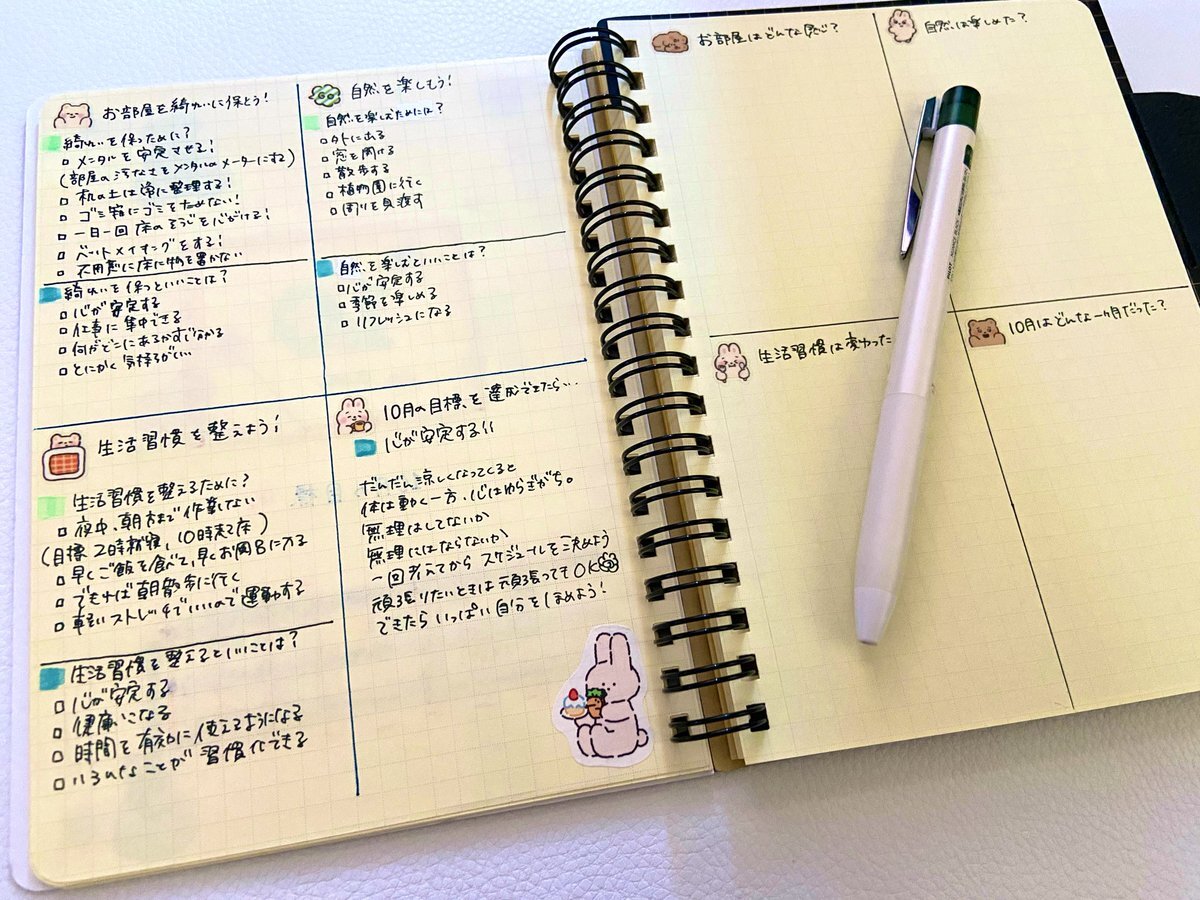 お部屋を綺れいに保とう!
綺れいを保つために?
メンタルを安定させる!
(部屋の汚なさをメンタルのメーターにする)
机の上は常に整理する!
ゴミ箱にゴミをためない!
一日一回床のそうじを心がける!
ベットメイキングをする!
不用意に床に物を置かない
綺れいを保つといいことは?
心が安定する
仕事に集中できる
何がどこにあるかすぐ分かる
とにかく気持ちがいい
自然を楽しもう!
自然を楽しむためには?
外に出る
窓を開ける
散歩する
植物園に行く
周りを見渡す
自然を楽しむといいことは?
心が安定する
季節を楽しめる
リフレッシュになる
生活習慣を整えよう!
生活習慣を整えるために?
夜中、朝方まで作業しない
(目標 2時就寝、10時起床)
早くご飯を食べて、早くお風呂に入る
できれば朝散歩に行く
軽いストレッチでいいので運動する
生活習慣を整えるといいことは?
心が安定する
健康になる
時間を有効に使えるようになる
いろんなことが習慣化できる
10月の目標を達成できたら…
心が安定する!!
だんだん涼しくなってくると
体は動く一方、心はゆらぎがち。
無理はしてないか
無理にはならないか
一回考えてからスケジュールを決めよう
頑張りたいときは頑張ってもOK
できたらいっぱい自分をほめよう!
お部屋はどんな感じ?
自然は楽しめた?
生活習慣は変わった
10月はどんな一ヶ月だった?